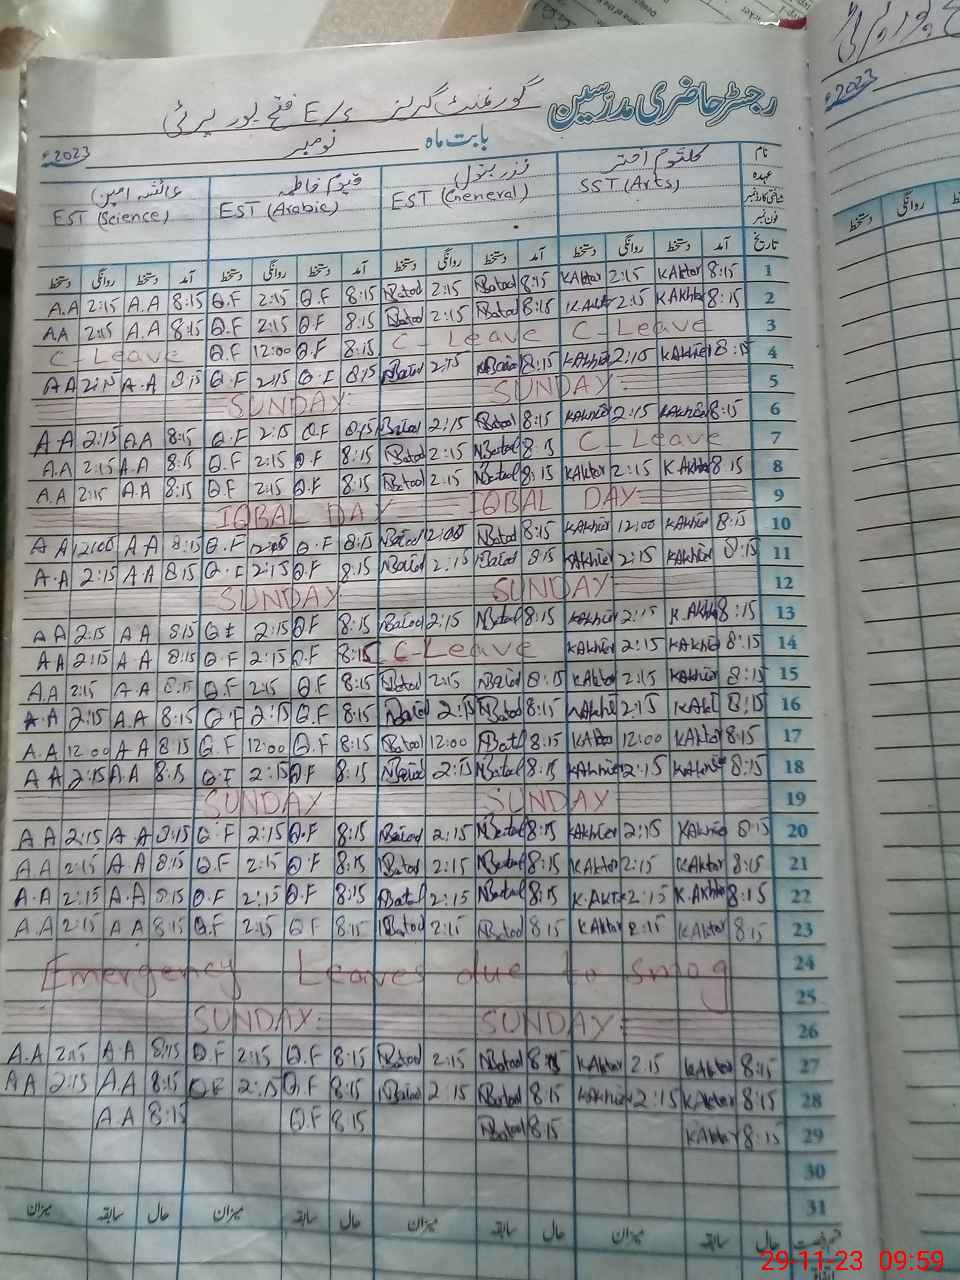 رجسٹر حاضری مدرسین گورنمنٹ گرلز E/S فتح پور
بابت ماہ نومبر 2023ء
نام کلثوم اختر بتول قیوم فاطمہ عائشہ امین
عہدہ SST (Arts) EST (General) EST (Arabic) EST (Science)
شناختی کارڈ نمبر
فون نمبر
تاریخ آمد دستخط روانگی دستخط آمد دستخط روانگی دستخط آمد دستخط روانگی دستخط آمد دستخط روانگی دستخط
A.A 2:15 A.A 8:15 Q.F 2:15 Q.F 8:15 NBatool 2:15 NBatool 8:15 KAkhtar 2:15 KAkhtar 8:15 1
A.A 2:15 A.A 8:15 Q.F 2:15 Q.F 8:15 NBatool 2:15 NBatool 8:15 KAkhtar 2:15 KAkhtar 8:15 2
C-Leave Q.F 12:00 Q.F 8:15 C-Leave C-Leave 3
A A 2:15 A.A 8:15 Q.F 2:15 Q.F 8:15 NBatool 2:15 NBatool 8:15 KAkhtar 2:15 KAkhtar 8:15 4
SUNDAY SUNDAY 5
A.A 2:15 A.A 8:15 Q.F 2:15 Q.F 8:15 NBatool 2:15 NBatool 8:15 KAkhtar 2:15 KAkhtar 8:15 6
A.A 2:15 A.A 8:15 Q.F 2:15 Q.F 8:15 NBatool 2:15 NBatool 8:15 C-Leave 7
A.A 2:15 A.A 8:15 Q.F 2:15 Q.F 8:15 NBatool 2:15 NBatool 8:15 KAkhtar 2:15 KAkhtar 8:15 8
IQBAL DAY IQBAL DAY 9
A A 12:00 A A 8:15 Q.F 12:00 Q.F 8:15 NBatool 12:00 NBatool 8:15 KAkhtar 12:00 KAkhtar 8:15 10
A.A 2:15 A A 8:15 Q.F 2:15 Q.F 8:15 NBatool 2:15 NBatool 8:15 KAkhtar 2:15 KAkhtar 8:15 11
SUNDAY SUNDAY 12
A A 2:15 A A 8:15 Q.F 2:15 Q.F 8:15 NBatool 2:15 NBatool 8:15 KAkhtar 2:15 K.Akhtar 8:15 13
A A 2:15 A.A 8:15 Q.F 2:15 Q.F 8:15 C-Leave KAkhtar 2:15 KAkhtar 8:15 14
A.A 2:15 A.A 8:15 Q.F 2:15 Q.F 8:15 NBatool 2:15 NBatool 8:15 KAkhtar 2:15 KAkhtar 8:15 15
A.A 2:15 A.A 8:15 Q.F 2:15 Q.F 8:15 NBatool 2:15 NBatool 8:15 KAkhtar 2:15 KAkhtar 8:15 16
A.A 12:00 A A 8:15 Q.F 12:00 Q.F 8:15 NBatool 12:00 NBatool 8:15 KAkhtar 12:00 KAkhtar 8:15 17
A A 2:15 A.A 8:15 Q.F 2:15 Q.F 8:15 NBatool 2:15 NBatool 8:15 KAkhtar 2:15 KAkhtar 8:15 18
SUNDAY SUNDAY 19
A A 2:15 A A 8:15 Q.F 2:15 Q.F 8:15 NBatool 2:15 NBatool 8:15 KAkhtar 2:15 KAkhtar 8:15 20
A A 2:15 A A 8:15 Q.F 2:15 Q.F 8:15 NBatool 2:15 NBatool 8:15 KAkhtar 2:15 KAkhtar 8:15 21
A.A 2:15 A.A 8:15 Q.F 2:15 Q.F 8:15 NBatool 2:15 NBatool 8:15 K.Akhtar 2:15 K.Akhtar 8:15 22
A.A 2:15 A A 8:15 Q.F 2:15 Q F 8:15 NBatool 2:15 NBatool 8:15 KAkhtar 2:15 KAkhtar 8:15 23
Emergency Leaves due to smog 24
25
SUNDAY SUNDAY 26
A.A 2:15 A.A 8:15 Q.F 2:15 Q.F 8:15 NBatool 2:15 NBatool 8:15 KAkhtar 2:15 KAkhtar 8:15 27
A A 2:15 A.A 8:15 Q.F 2:15 Q.F 8:15 NBatool 2:15 NBatool 8:15 KAkhtar 2:15 KAkhtar 8:15 28
A A 8:15 Q.F 8:15 NBatool 8:15 KAkhtar 8:15 29
30
31
حال سابقہ میزان حال سابقہ میزان حال سابقہ میزان حال سابقہ میزان
2023ء
روانگی دستخط
29-11-23 09:59